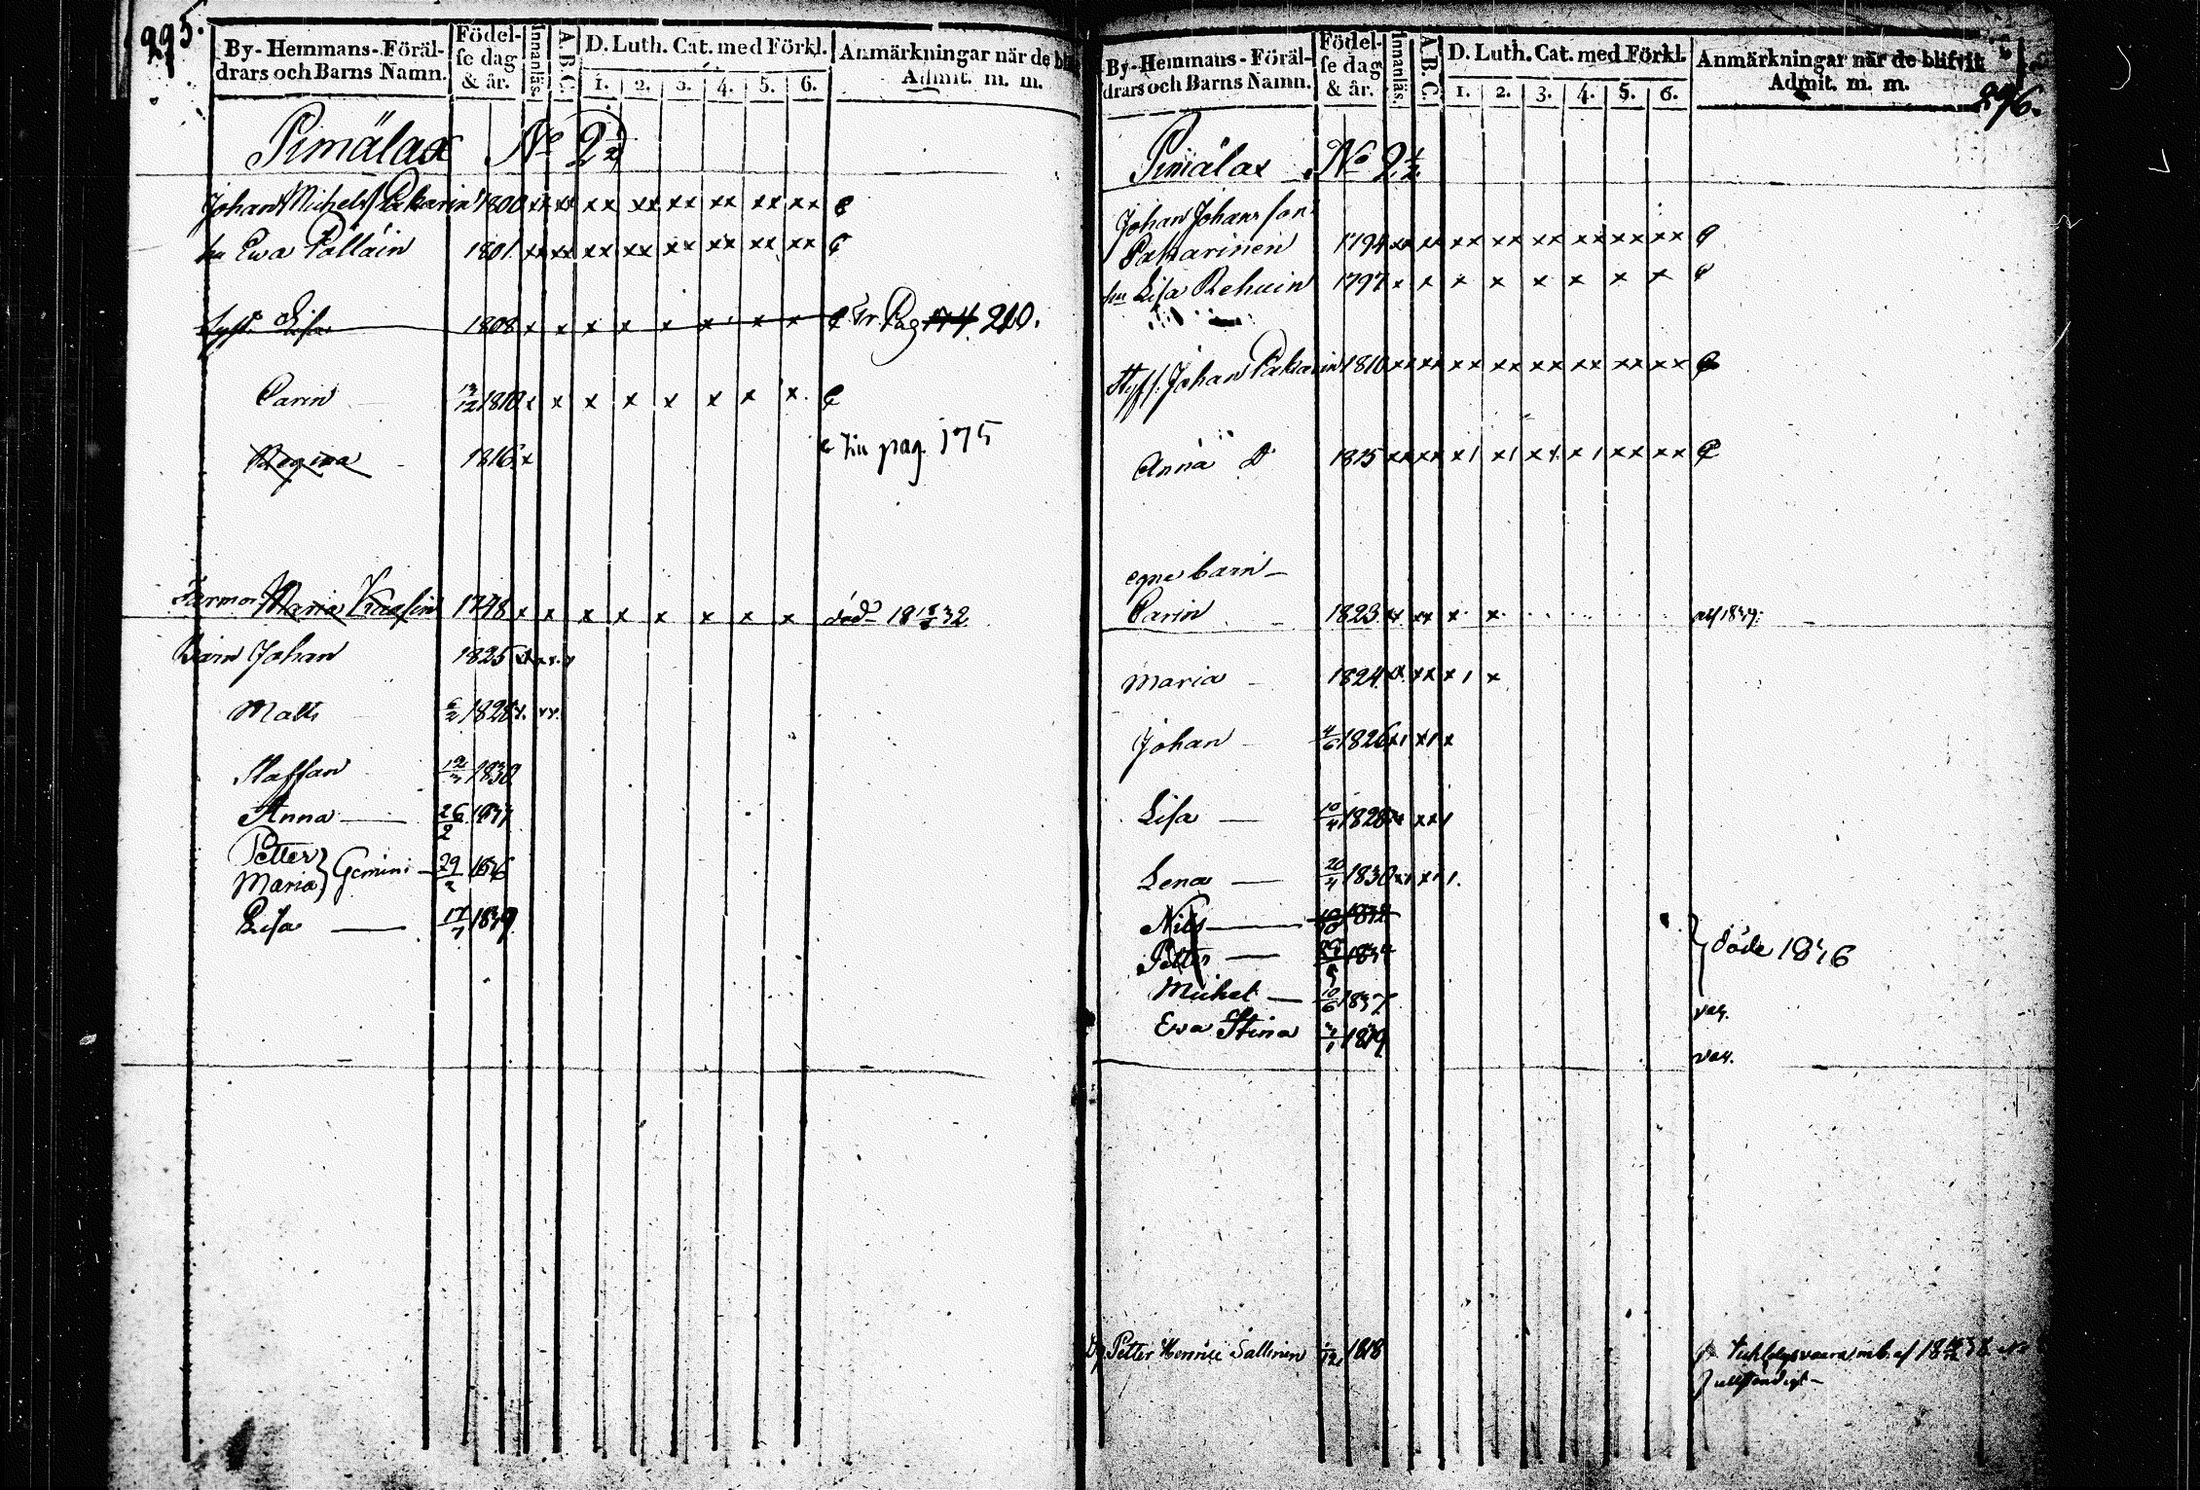 295.
By-Hemmans-Föräl-
drars och Barns Namn.
Födel-
se dag
& år.
Innanläs.
A.B.C.
D. Luth. Cat. med Förkl.
1. 2. 3. 4. 5. 6.
Anmärkningar när de
Admit. m. m.
Pimälax No 2 1/2
Johan Michelss Pakarin 1800 xx xx xx xx xx xx xx xx
hu Ewa Pölläin 1801 xx xx xx xx xx xx xx xx
Syst. Lisa 1808 x x x x x x x x Tr. Pag 210.
Carin 1810 x x x x x x x x
Regina 1816 x Tili pag. 175
Farmor Maria 1748 x x x x x x x x död 1832
Barn Johan 1825
Matts 1828
Staffan 1830
Anna 26/2
Petter
Maria } Gemini 29/2 1836
Lisa 17/7 1839
By-Hemmans-Föräl-
drars och Barns Namn.
Födel-
se dag
& år.
Innanläs.
A.B.C.
D. Luth. Cat. med Förkl.
1. 2. 3. 4. 5. 6.
Anmärkningar när de blifvit
Admit. m. m.
296.
Pimälax No 2 1/2
Johan Johansson
Pakarinen 1794 xx xx xx xx xx xx xx xx
hu Lisa Rehuin 1797 x x x x x x x x
Styfs. Johan Pakarin 1810 xx xx xx xx xx xx xx xx
Anna D 1815 xx xx x1 x1 xx x1 xx xx
egne barn
Carin 1823 xx xx x x
Maria 1824 x xx x1 x
Johan 4/6 1826 x1 x1 x
Lisa 10/4 1828
Lena 20/4 1830
Nils 1832
Petter 1834 } döde 1836
Michel 10/6 1837 vac.
Ewa Stina 1839 vac.
Petter Henric Sallinen 1/12 1818